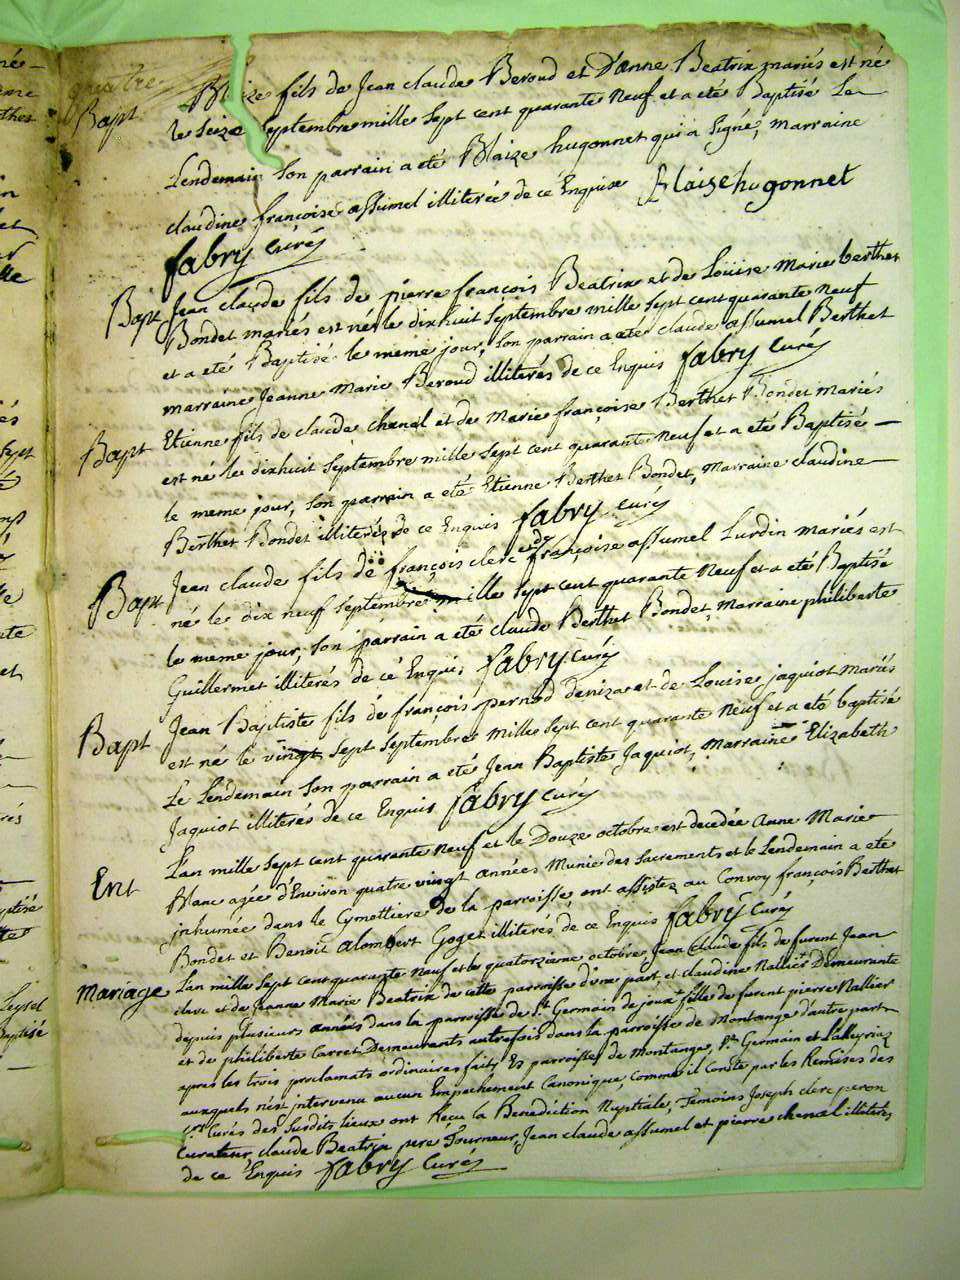 quatre
Bapt Blaize fils de Jean claude Beroud et D'anne Beatrix mariés est né
le Seize Septembre mille Sept cent quarante Neuf et a eté Baptisé Le
Lendemain Son parrain a eté Blaize hugonnet qui a Signé, Marraine
claudine françoise assumel illiterée de cé Enquise Blaise hugonnet
fabry curé
Bapt Jean claude fils de pierre françois Beatrix et de Loüise Marie berthet
Bondet mariés est né le dixhuit Septembre mille Sept cent quarante Neuf
et a eté Baptisé le meme jour, Son parrain a eté claude assumel Berthet
marraine Jeanne Marie Beroud illiterés de ce Enquis fabry curé
Bapt Etienne fils de claude chanal et de Marie françoise Berthet Bondet mariés
est né le dixhuit Septembre mille Sept cent quarante Neuf et a eté Baptisé
le meme jour, Son parrain a eté Etienne Berthet Bondet, Marraine claudine
Berthet Bondet illiterés de ce Enquis fabry curé
Bapt Jean claude fils de françois clerc et de françoise assumel Lurdin mariés est
né le dix neuf Septembre mille Sept cent quarante Neuf et a eté Baptisé
le meme jour, Son parrain a eté claude Berthet Bondet, Marraine philiberte
Guillermet illiterés de cé Enquis fabry curé
Bapt Jean Baptiste fils de françois pernod deniza et de Louise jaquiot mariés
est né le vingt Sept Septembre mille Sept cent quarante Neuf et a eté baptisé
Le Lendemain Son parrain a eté Jean Baptiste Jaquiot, Marraine Elizabeth
Jaquiot illiterés de ce Enquis fabry curé
Ent L'an mille Sept cent quarante Neuf et le Douze octobre est decedée Anne Marie
Blanc agée d'Environ quatre vingt années Munie des Sacrements et le Lendemain a eté
inhumée dans le Cymettiere de la parroisse, ont assistez au Convoy françois Berthet
Bondet et Benoit alombert Goget illiterés de ce Enquis fabry Curé
Mariage L'an mille Sept cent quarante Neuf et le quatorzieme octobre, Jean Claude fils de furent Jean
clerc et de Jeanne Marie Beatrix de cette parroisse d'une part, et claudine Nallier Demeurante
depuis plusieurs années dans la parroisse de St Germain de joux fille de furent pierre Nallier
et de philiberte Carret Demeurants autrefois dans la parroisse de Montange d'autre part
apres les trois proclamats ordinaires faits Es parroisses de Montange, St Germain et Lalleyriaz
auxquels n'est intervenu aucun Empechement Canonique, Comme il Conste par les Remises des
Srs Curés des Susdits lieux ont Reçu la Benediction Nuptiale, Temoins Joseph clerc peron
Curateur, claude Beatrix pere Tourneur, Jean claude assumel et pierre chenal illiterés
de ce Enquis fabry Curé